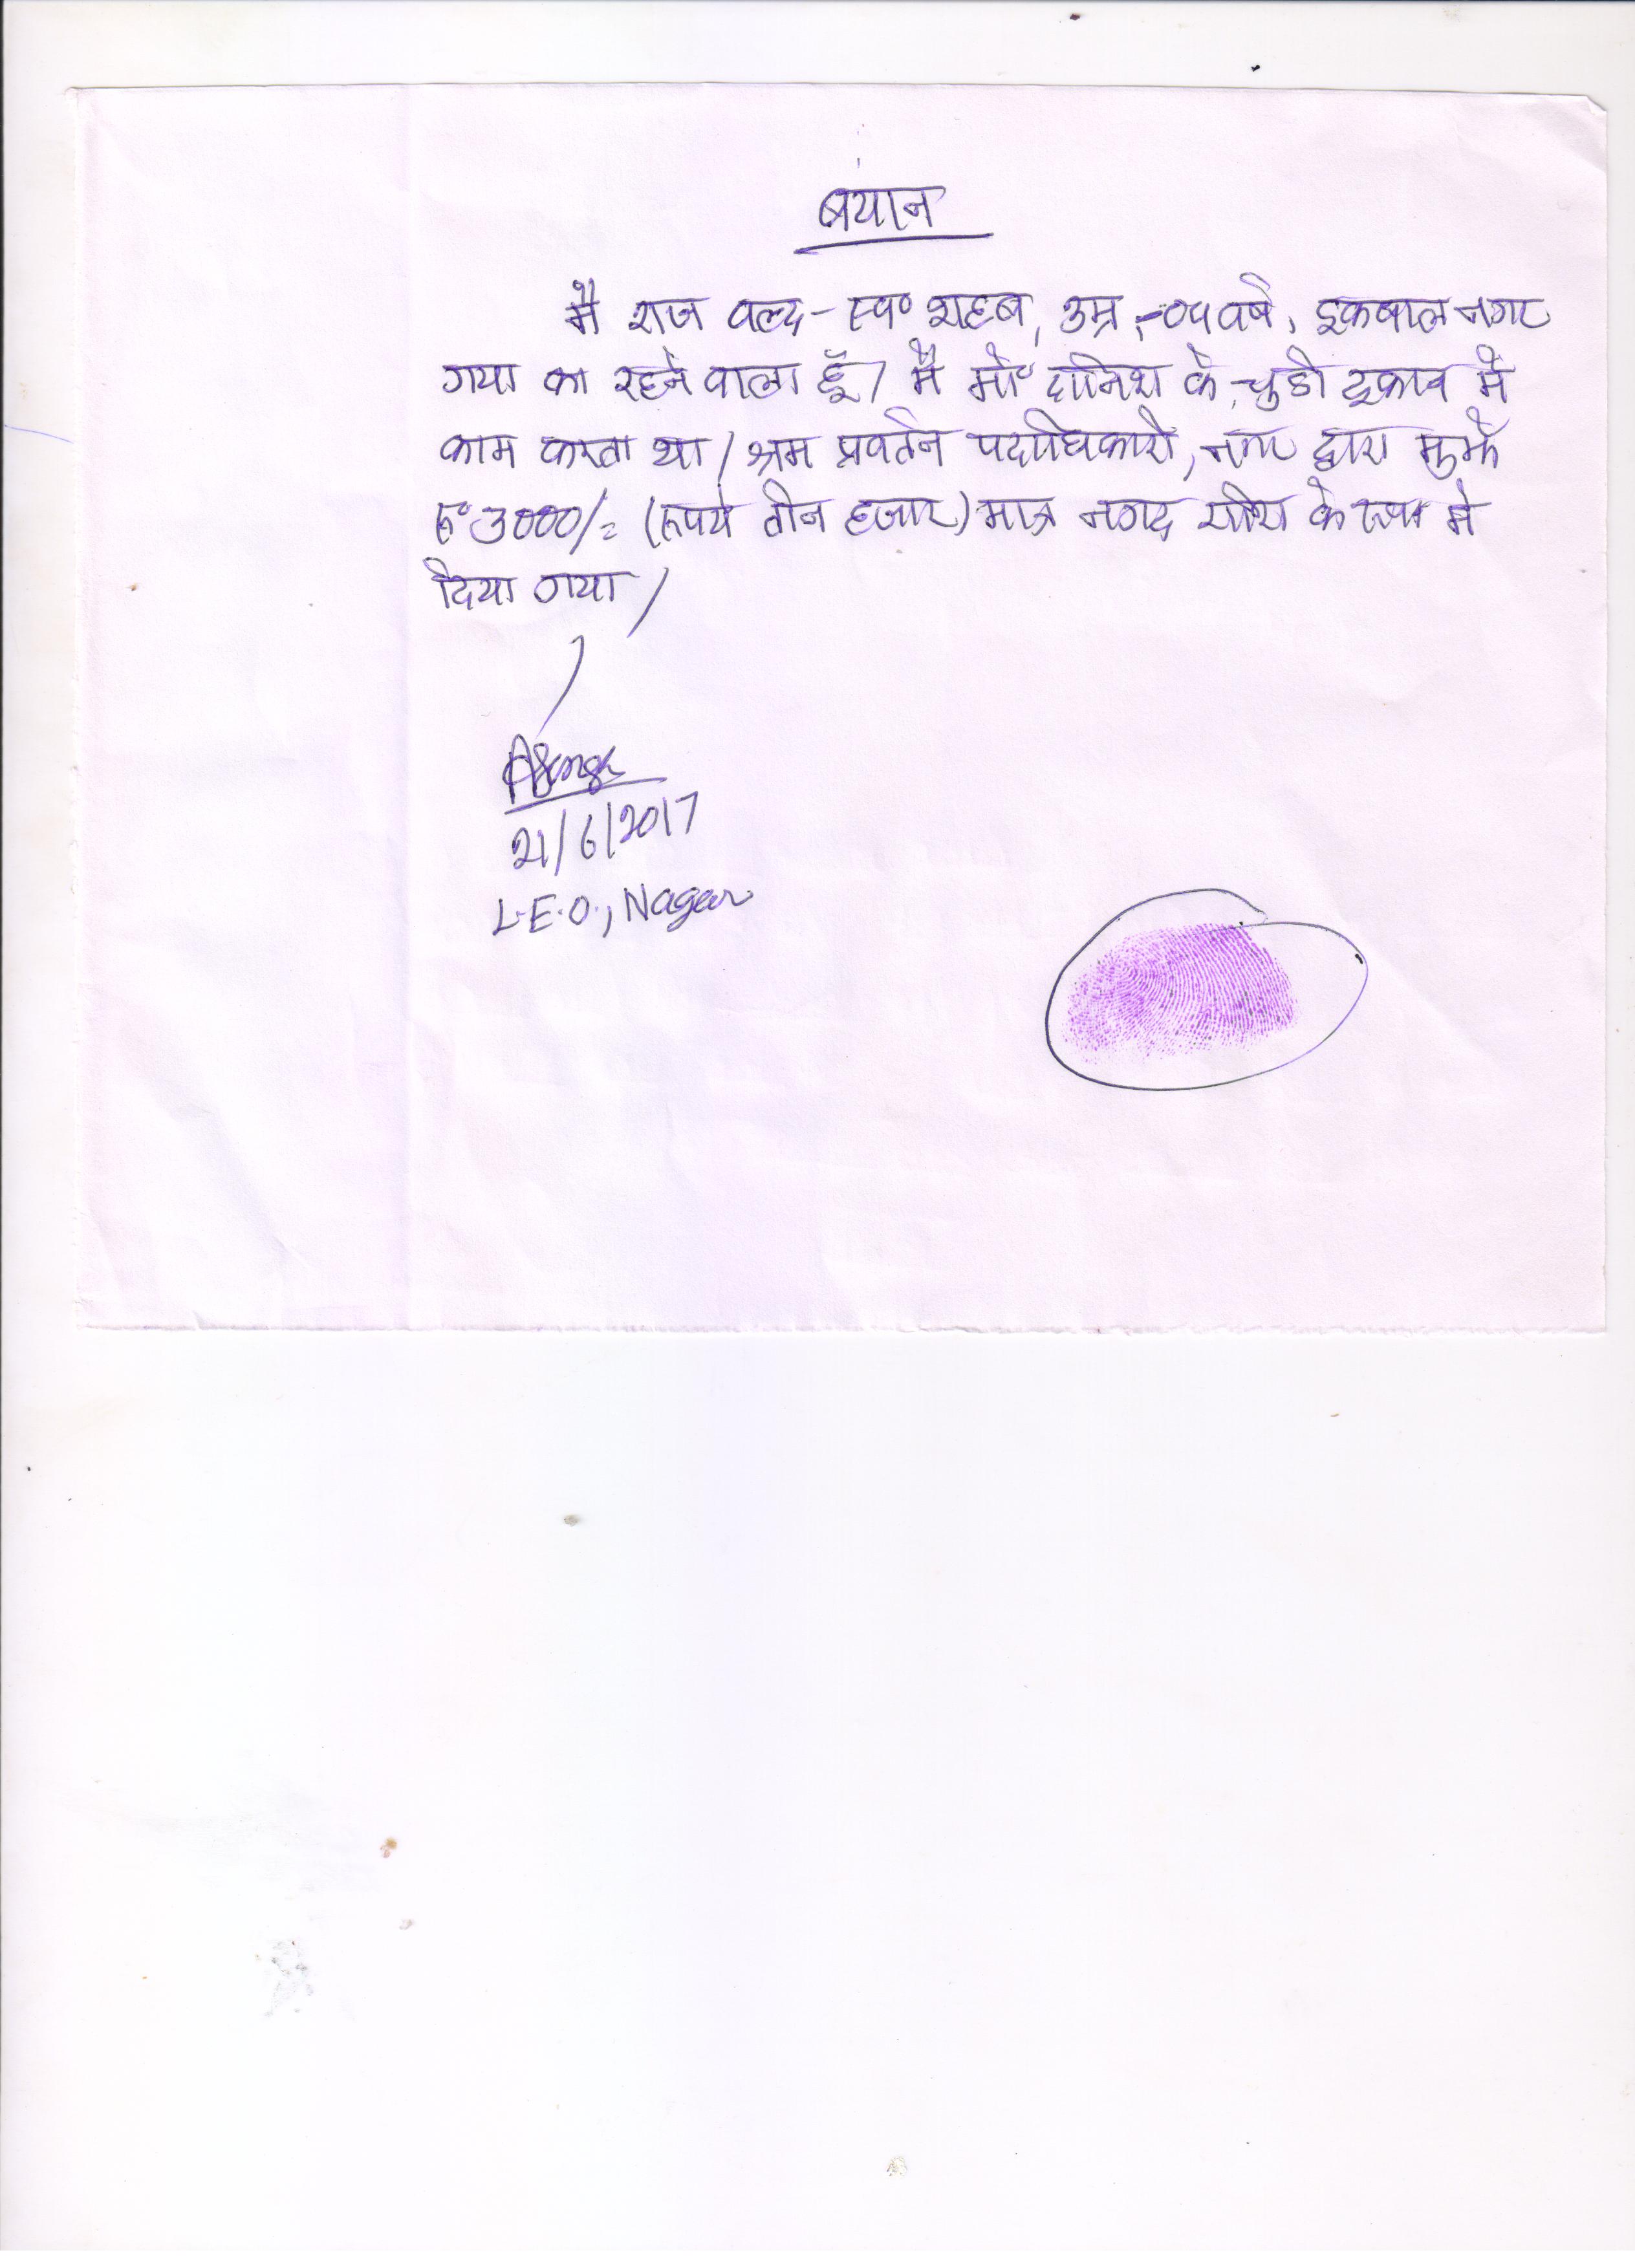 बयान
मै राज वल्द - स्व० शहब, उम्र :- 09 वर्ष, इकबाल नगर
गया का रहने वाला हूँ। मै मो० दानिश के चुडी दूकान मे
काम करता था। श्रम प्रवर्तन पदाधिकारी, नगर द्वारा मुझे
रू० 3000/= (रूपये तीन हजार) मात्र नगद राशि के रूप मे
दिया गया।
21/6/2017
L.E.O., Nagar